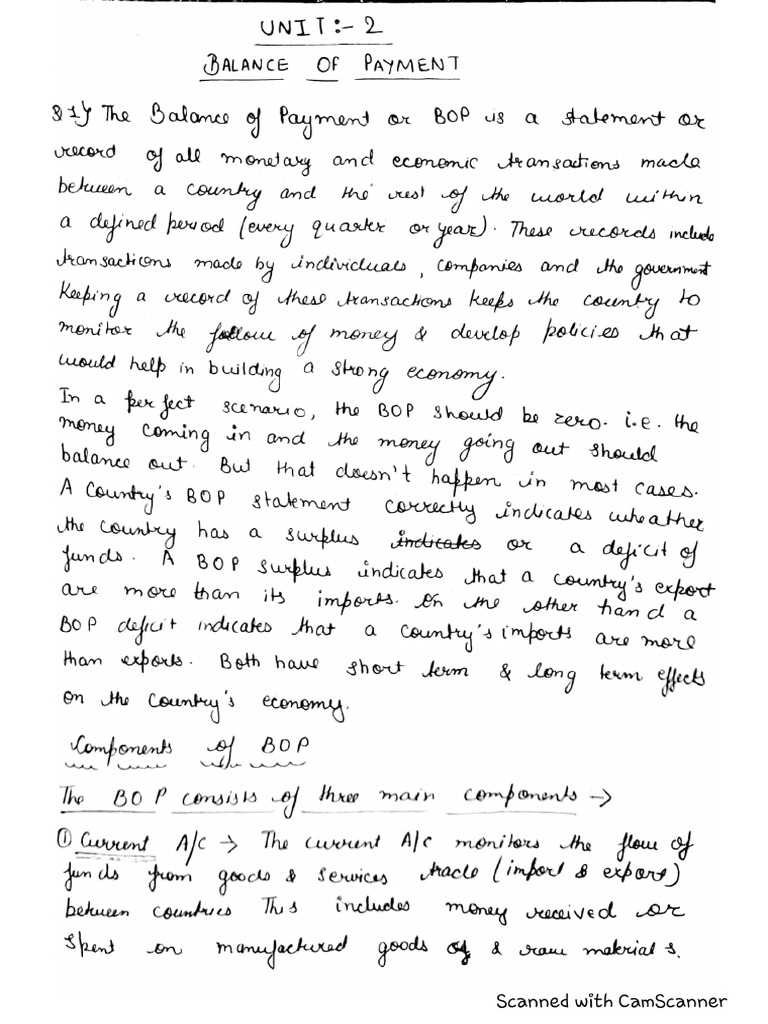 UNIT:- 2
BALANCE OF PAYMENT
Q1) The Balance of Payment or BOP is a statement or
record of all monetary and economic transactions made
between a country and the rest of the world within
a defined period (every quarter or year). These records include
transactions made by individuals, companies and the government
Keeping a record of these transactions keeps the country to
monitor the follow of money & develop policies that
would help in building a strong economy.
In a perfect scenario, the BOP should be zero. i.e. the
money coming in and the money going out should
balance out. But that doesn't happen in most cases.
A Country's BOP statement correctly indicates wheather
the country has a surplus indicates or a deficit of
funds. A BOP surplus indicates that a country's export
are more than its imports. On the other hand a
BOP deficit indicates that a country's imports are more
than exports. Both have short term & long term effects
on the country's economy.
Components of BOP
The BOP consists of three main components →
① Current A/c → The current A/c monitors the flow of
funds from goods & services trade (import & export)
between countries This includes money received or
spent on manufactured goods of & raw material s.
Scanned with CamScanner